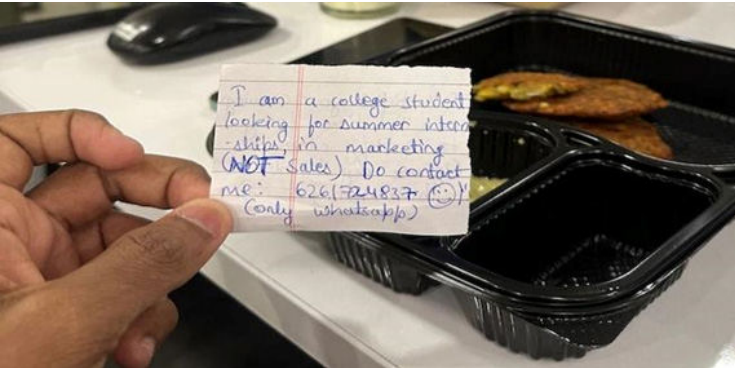 I am a college student
looking for summer intern
-ships, in marketing
(NOT Sales) Do contact
me: 6261724837 ☺
(only whatsapp)